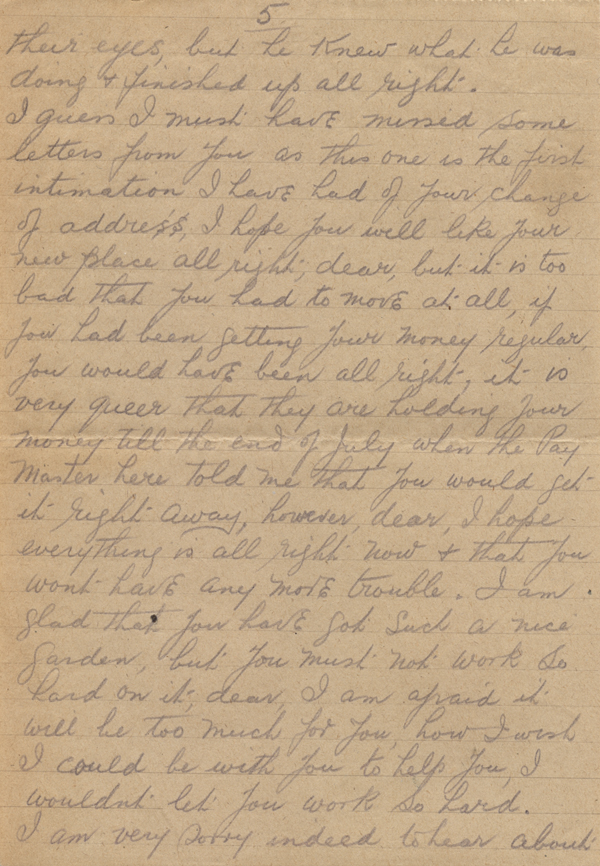 5
their eyes, but he knew what he was
doing & finished up all right.
I guess I must have missed some
letters from you as this one is the first
intimation I have had of your change
of address, I hope you will like your
new place all right, dear, but it is too
bad that you had to move at all, if
you had been getting your money regular,
you would have been all right, it is
very queer that they are holding your
money till the end of July when the Pay
Master here told me that you would get
it right away, however, dear, I hope
everything is all right now & that you
wont have any more trouble. I am
glad that you have got such a nice
garden, but you must not work so
hard on it, dear, I am afraid it
will be too much for you, how I wish
I could be with you to help you, I
wouldnt let you work so hard.
I am very sorry indeed to hear about